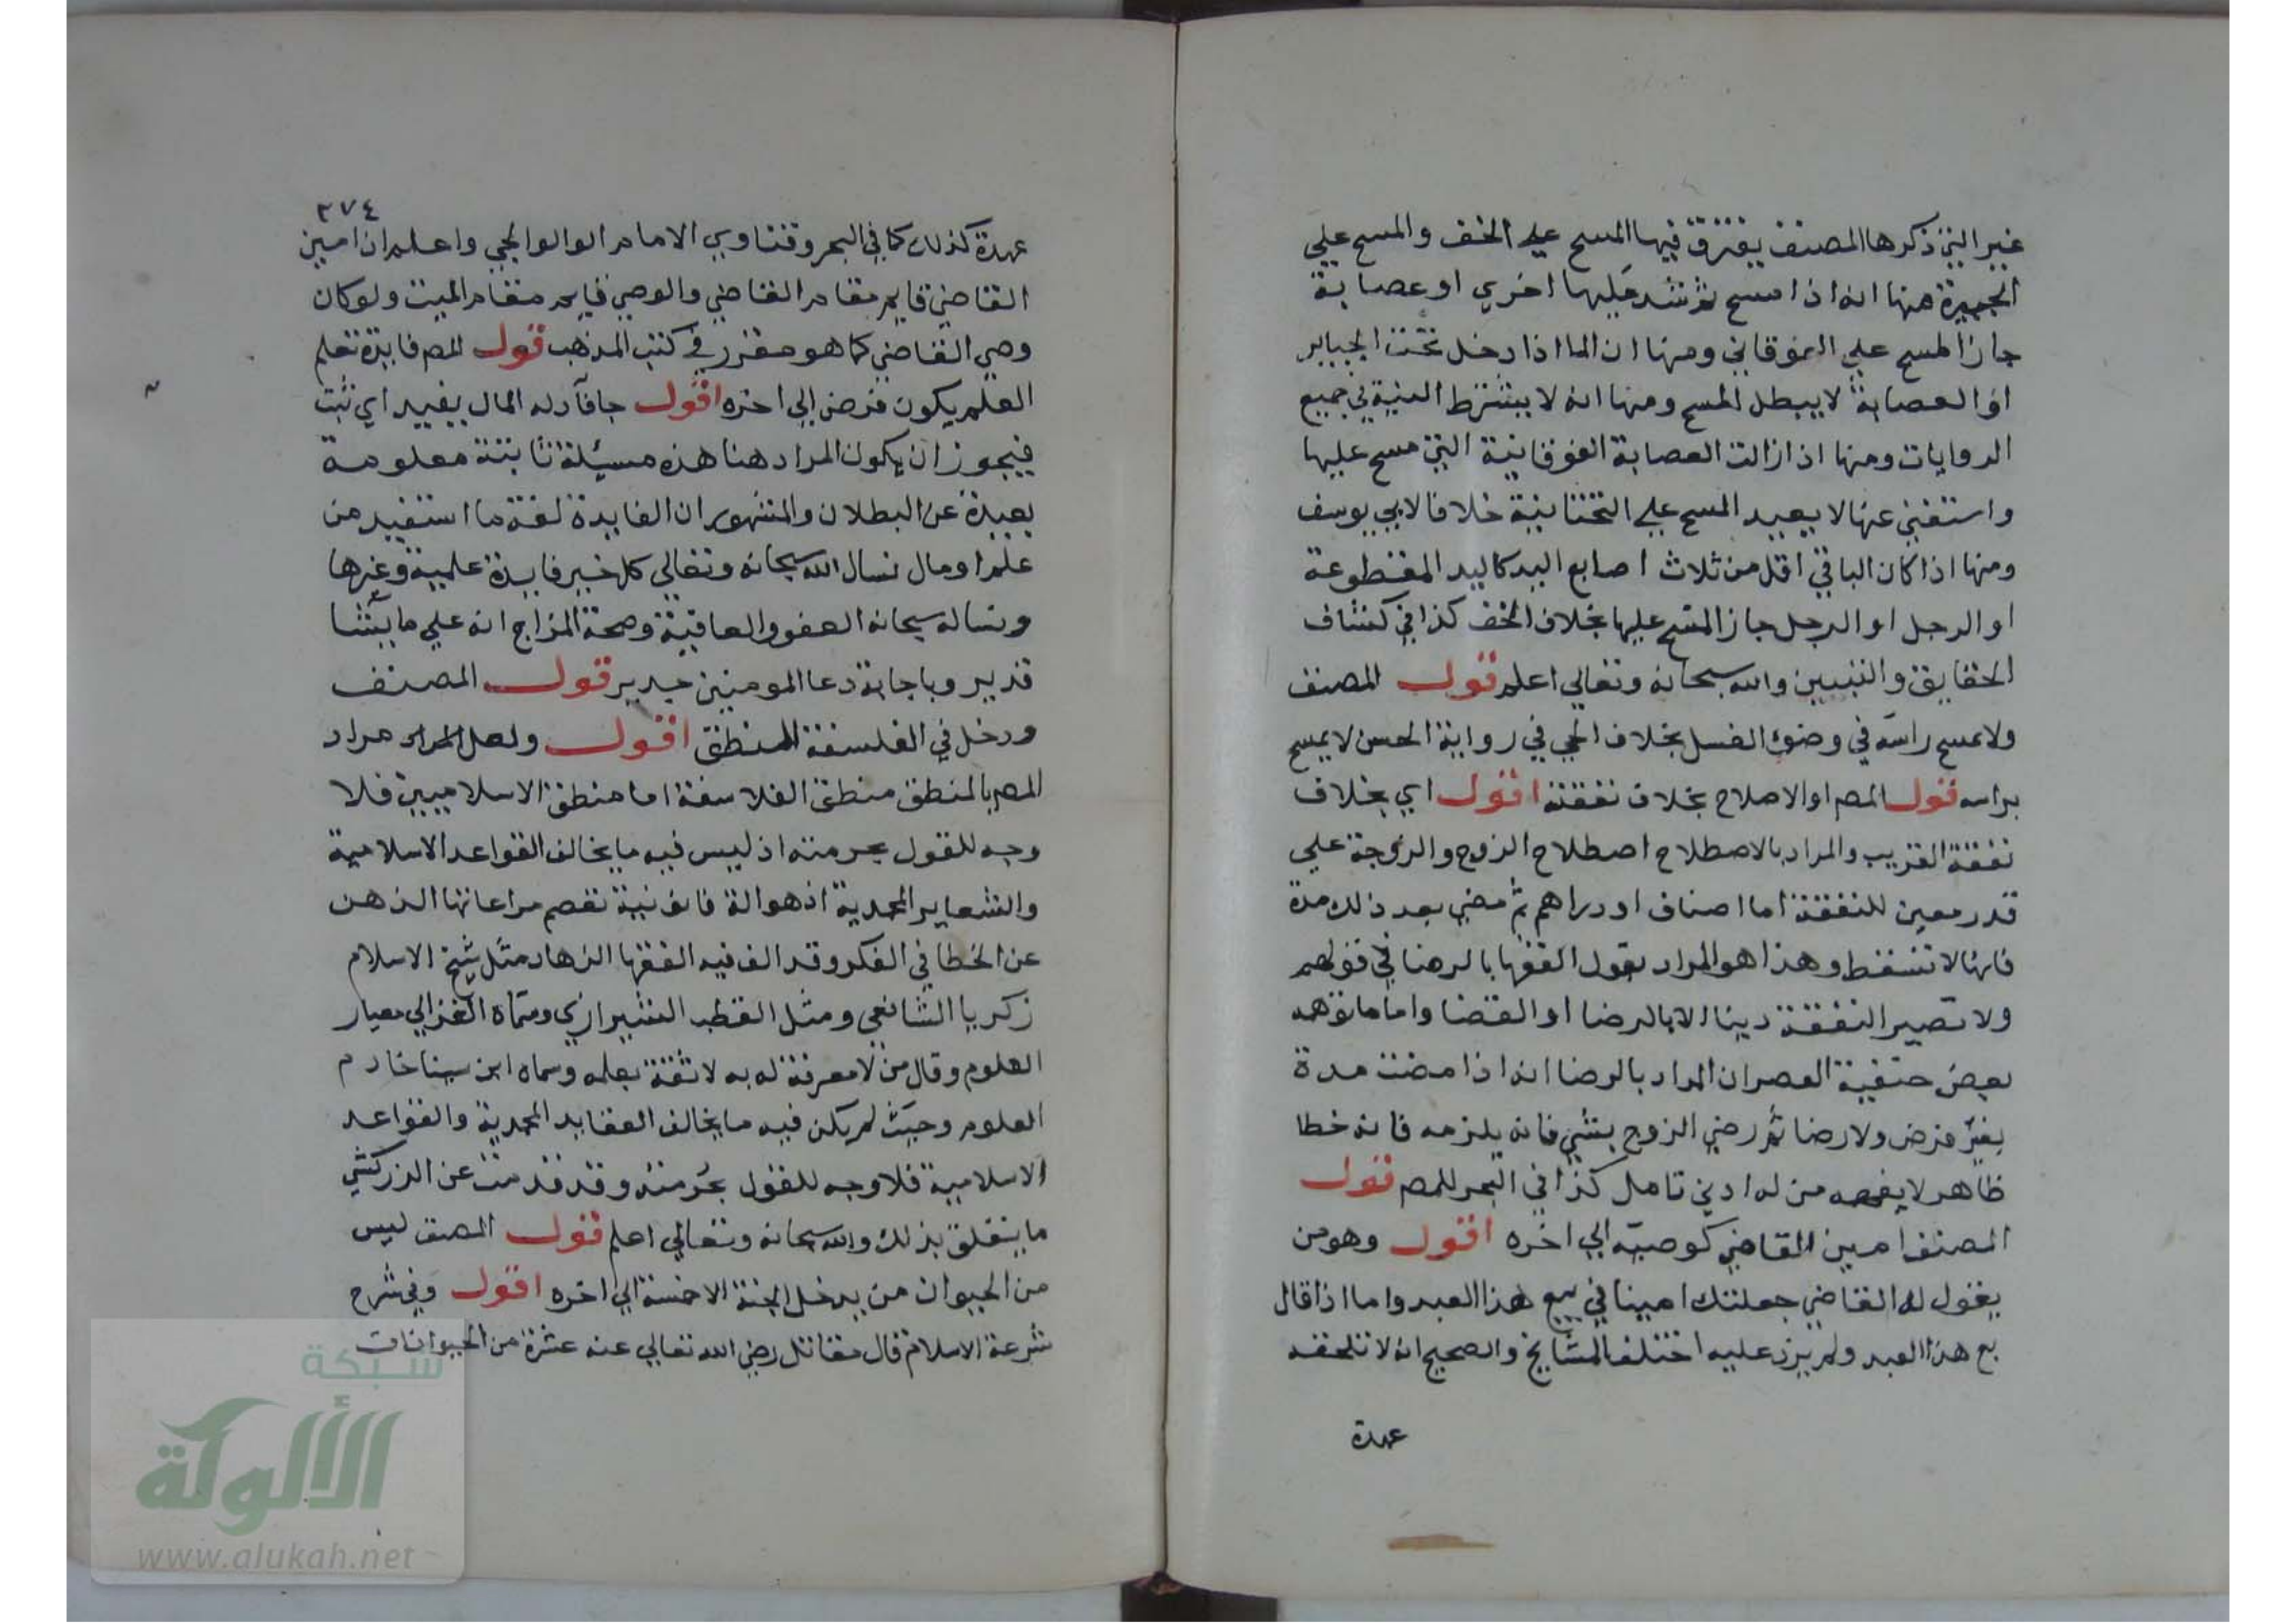 غير التي ذكرها المصنف يفترق فيها المسح على الخف والمسح علي
الجبيرة منها انه اذا مسح ثم شد عليها اخري او عصابة
جاز المسح علي الفوقاني ومنها ان الما اذا دخل تحت الجباير
او العصابة لا يبطل المسح ومنها انه لا يشترط النية في جميع
الروايات ومنها اذا زالت العصابة الفوقانية التي مسح عليها
واستغني عنها لا يعيد المسح علي التحتانية خلافا لابي يوسف
ومنها اذا كان الباقي اقل من ثلاث اصابع اليد كاليد المقطوعة
او الرجل او الرجل جاز المسح عليها بخلاف الخف كذا في كشاف
الحقايق والتبيين والله سبحانه وتعالي اعلم قول المصنف
ولا يمسح راسه في وضوء الغسل بخلاف الحي في رواية الحسن لا يمسح
براسه قول المص او الاصلاح بخلاف نفقته اقول اي بخلاف
نفقة القريب والمراد بالاصطلاح اصطلاح الزوج والزوجة علي
قدر معين للنفقة اما اصناف او دراهم ثم مضي بعد ذلك مدة
فانها لا تسقط وهذا هو المراد بقول الفقها بالرضا في قولهم
ولا تصير النفقة دينا الا بالرضا او القضا واما ما توهمه
بعض حنفية العصر ان المراد بالرضا انه اذا مضت مدة
بغير فرض ولا رضا ثم رضي الزوج بشي فانه يلزمه فانه خطا
ظاهر لا يفهمه من له ادني تامل كذا في البحر للمص قول
المصنف امين القاضي كوصيه الي اخره اقول وهو من
يقول له القاضي جعلتك امينا في بيع هذا العبد واما اذا قال
بع هذا العبد ولم يزد عليه اختلف المشايخ والصحيح انه لا تلحقه
عهدة
٣٧٤
عهدة كذلك كما في البحر وفتاوي الامام الوالوالجي واعلم ان امين
القاضي قايم مقام القاضي والوصي قايم مقام الميت ولو كان
وصي القاضي كما هو مقرر في كتب المذهب قول المص فايدة تعلم
العلم يكون فرض الي اخره اقول جا فآد له المال يفيد اي ثبت
فيجوز ان يكون المراد هنا هذه مسيلة ثابتة معلومة
بعيدة عن البطلان والمشهور ان الفايدة لغة ما استفيد من
علم او مال نسال الله سبحانه وتعالي كل خير فايدة علمية وغيرها
ونساله سبحانه العفو والعافية وصحة المزاج انه علي ما يشا
قدير وباجابة دعا المومنين جدير قول المصنف
ودخل في الفلسفة المنطق اقول ولعل مراد
المص بالمنطق منطق الفلاسفة اما منطق الاسلاميين فلا
وجه للقول بحرمته اذ ليس فيه ما يخالف القواعد الاسلامية
والشعاير المحمدية اذ هو الة قانونية تعصم مراعاتها الذهن
عن الخطا في الفكر وقد الف فيه الفقها الزهاد مثل شيخ الاسلام
زكريا الشافعي ومثل القطب الشيرازي وسماه الغزالي معيار
العلوم وقال من لا معرفة له به لا ثقة بعلمه وسماه ابن سينا خادم
العلوم وحيث لم يكن فيه ما يخالف العقايد المحمدية والقواعد
الاسلامية فلا وجه للقول بحرمته وقد قدمت عن الزركشي
ما يتعلق بذلك والله سبحانه وتعالي اعلم قول المصنف ليس
من الحيوان من يدخل الجنة الا خمسة الي اخره اقول وفي شرح
شرعة الاسلام قال مقاتل رضي الله تعالي عنه عشرة من الحيوانات
شبكة
الألوكة
www.alukah.net